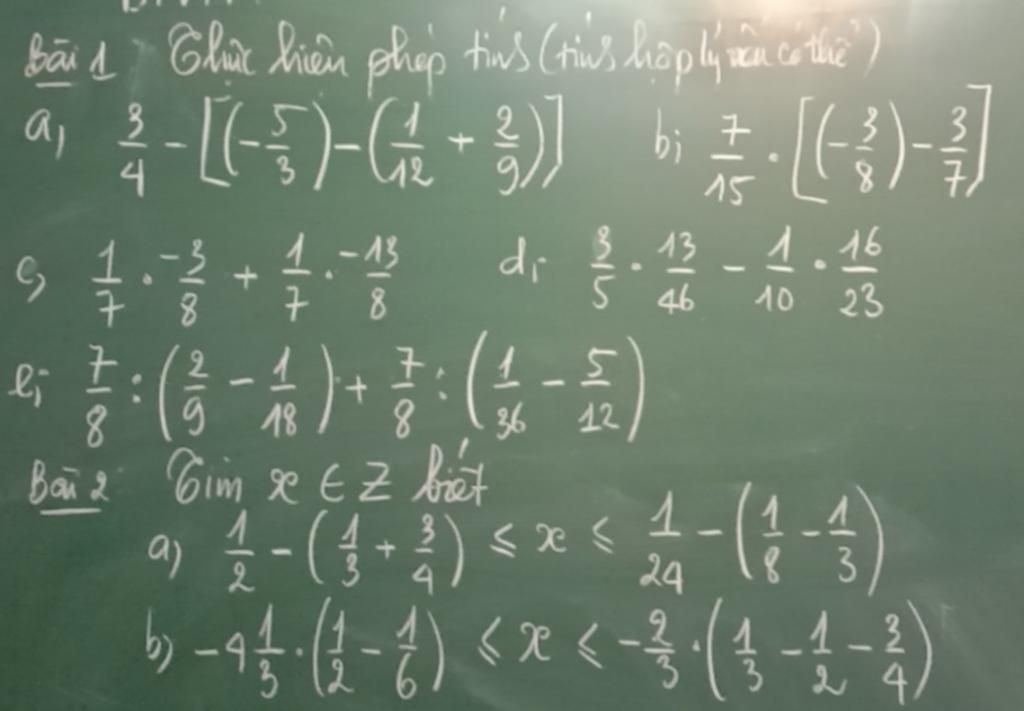 Bài 1 Thực hiện phép tính (tính hợp lý nếu có thể)
a, 3/4 - [(-5/3) - (1/12 + 2/9)] b; 7/15 . [(-3/8) - 3/7]
c, 1/7 . -3/8 + 1/7 . -13/8 d; 3/5 . 13/46 - 1/10 . 16/23
e; 7/8 : (2/9 - 1/18) + 7/8 : (1/36 - 5/12)
Bài 2 Tìm x ∈ Z biết
a) 1/2 - (1/3 + 3/4) ≤ x ≤ 1/24 - (1/8 - 1/3)
b) -4 1/3 . (1/2 - 1/6) ≤ x ≤ -2/3 . (1/3 - 1/2 - 3/4)